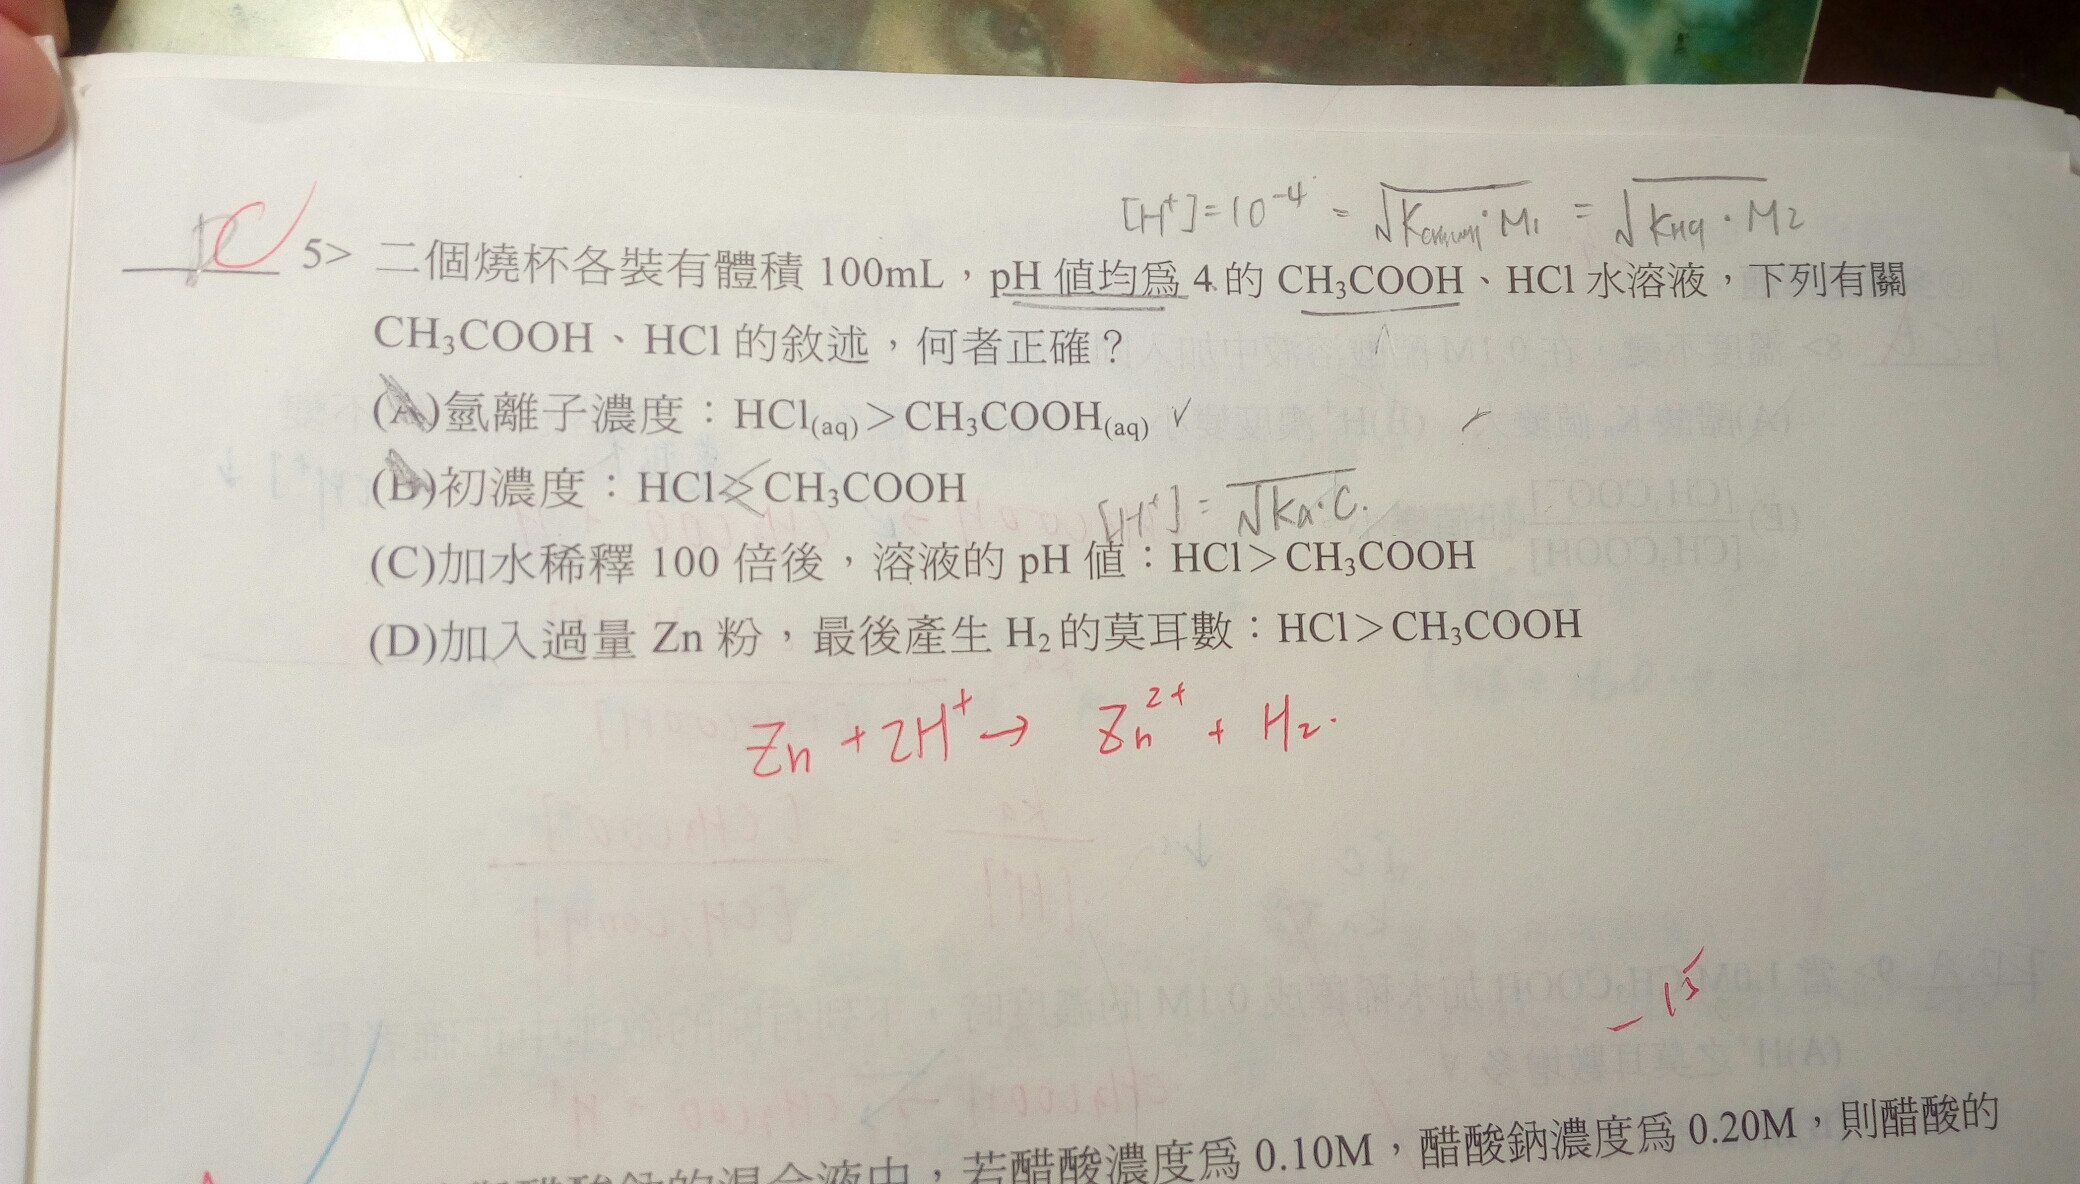 [H⁺]=10⁻⁴ = √K · M₁ = √K · M₂
C 5> 二個燒杯各裝有體積 100mL，pH 值均爲 4 的 CH₃COOH、HCl 水溶液，下列有關
CH₃COOH、HCl 的敘述，何者正確？
(A)氫離子濃度：HCl(aq)＞CH₃COOH(aq) ✓
(B)初濃度：HCl＞CH₃COOH
[H⁺] = √Ka·C.
(C)加水稀釋 100 倍後，溶液的 pH 值：HCl＞CH₃COOH
(D)加入過量 Zn 粉，最後產生 H₂ 的莫耳數：HCl＞CH₃COOH
Zn + 2H⁺ → Zn²⁺ + H₂.
-15
的混合液中，若醋酸濃度爲 0.10M，醋酸鈉濃度爲 0.20M，則醋酸的